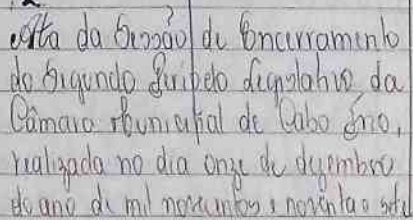 Ata da Sessão de Encerramento
do Segundo Período Legislativo da
Câmara Municipal de Cabo Frio,
realizada no dia onze de dezembro
do ano de mil novecentos e noventa e sete